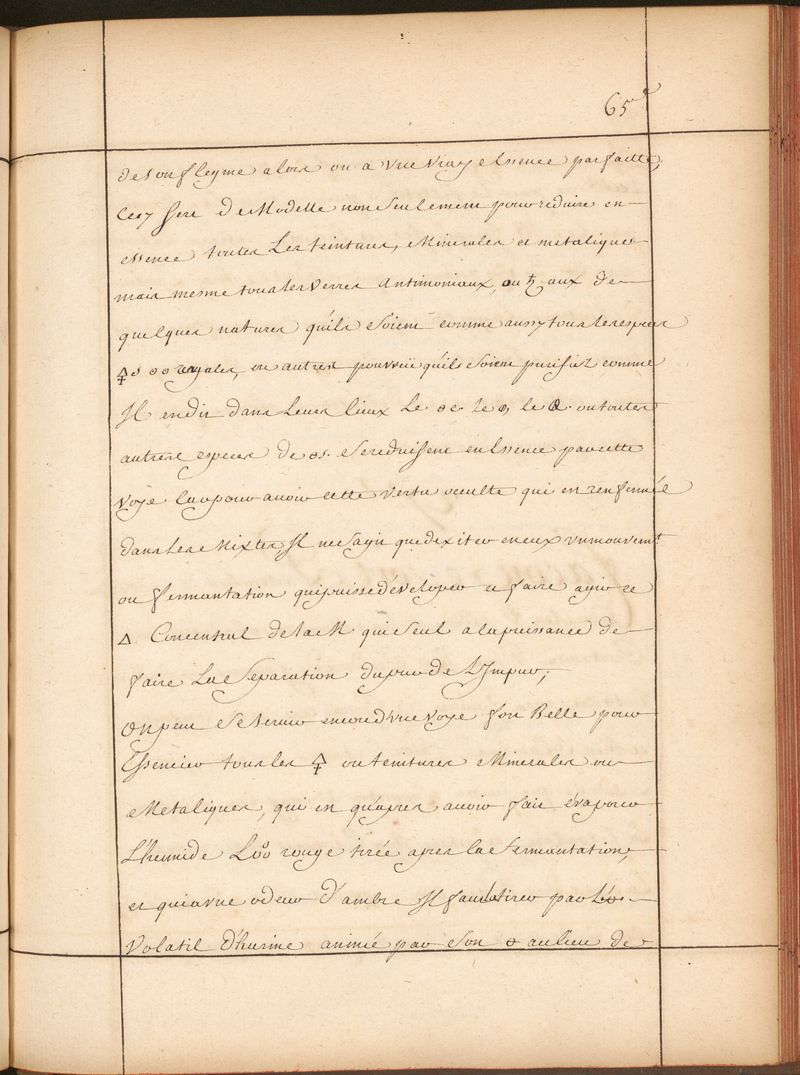 65
de son flegme alors on a une vraye essence parfaitte,
Cecy sert de Modelle non seulement pour reduire en
essence toutes Les teintures, Minerales et metaliques
mais mesme tous les verres Antimoniaux, ou ♄aux de
quelques natures qu'ils soient comme aussy tous les especes
🜍s royales, ou autres pourveü qu'ils soient purifiez comme
Il en dit dans Leurs lieux Le le le ou toutes
autres especes de se reduisent en Essence par cette
voye la pour avoir cette vertu occulte qui est renfermée
dans Les Mixtes, Il ne s'agit que d'exiter en eux un mouvemt
ou fermantation qui puisse développer et faire agir ce
🜂 Concentral de la qui seul a la puissance de
faire La Separation du pur de L'Impur,
On peut Se servir encore d'une voye fort Belle pour
Essencier tous les 🜍 ou teintures Minerales ou
Metaliques, qui est qu'apres avoir fait évaporer
L'humide rouge tirée apres la fermantation,
et qui a une odeur d'ambre Il faut tirer par
Volatil d'hurine animée par son au lieu de